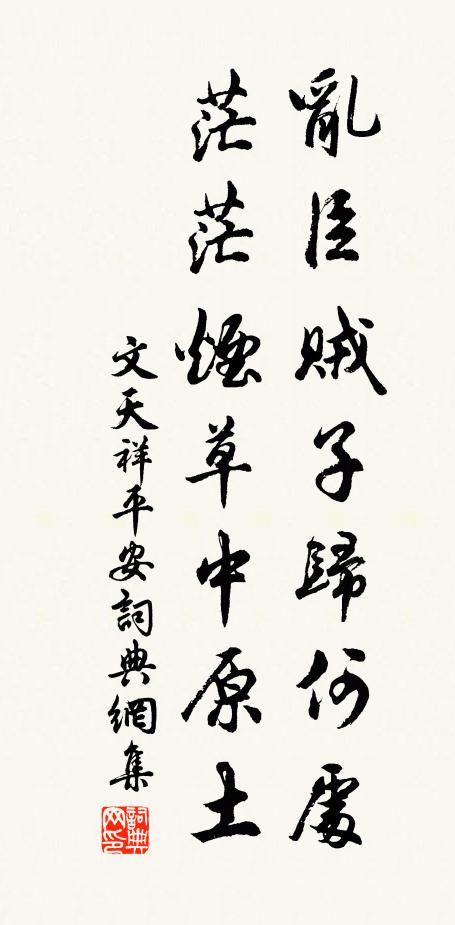 亂臣賊子歸何處
茫茫煙草中原土
文天祥平安詞典網集
詞典网印